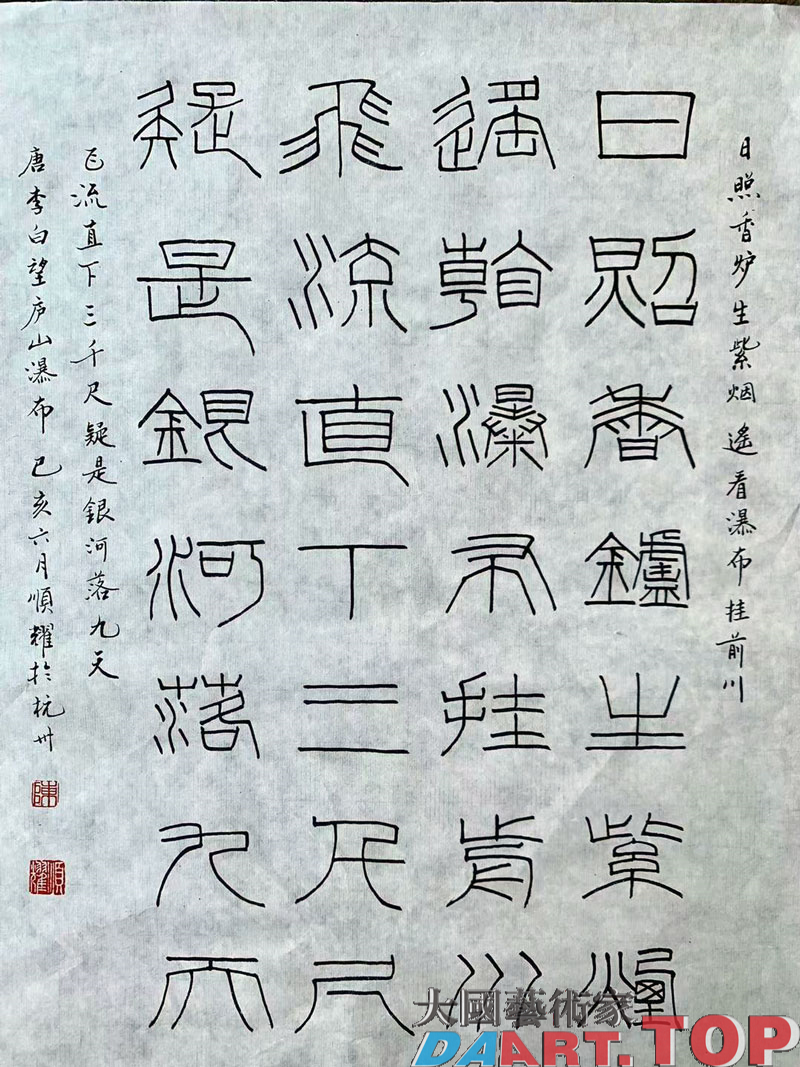 日照香炉生紫烟遥看瀑布挂前川
日照香鑪生紫煙
遥看瀑布挂前川
飛流直下三千尺
疑是銀河落九天
飞流直下三千尺疑是銀河落九天
唐李白望庐山瀑布己亥六月順耀於杭州
陳
順耀
大國藝術家
DAART.TOP